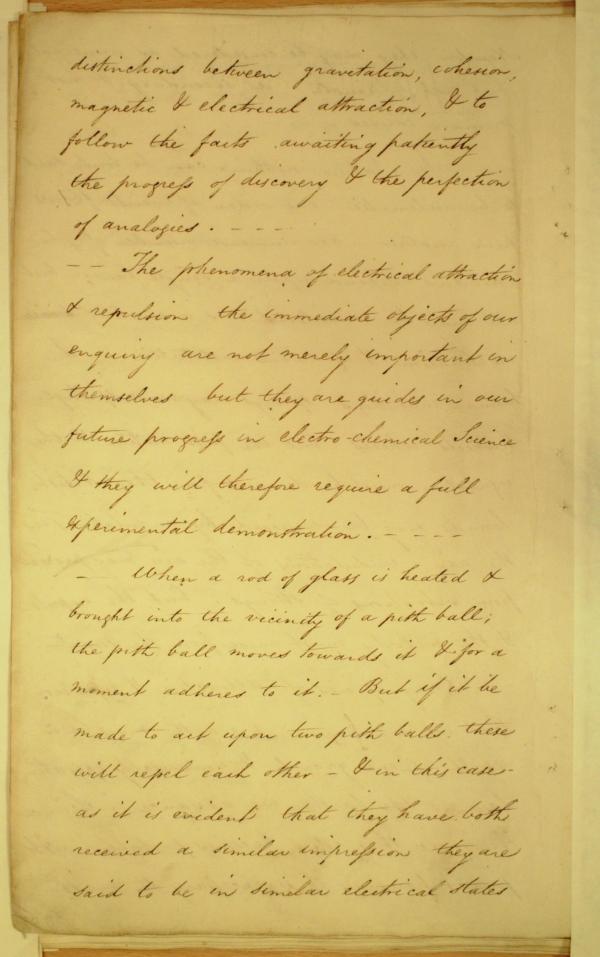 distinctions between gravitation, cohesion,
magnetic & electrical attraction, & to
follow the facts awaiting patiently
the progress of discovery & the perfection
of analogies. - - - -
- - The phenomena of electrical attraction
& repulsion the immediate objects of our
enquiry are not merely important in
themselves but they are guides in our
future progress in electro-chemical Science
& they will therefore require a full
experimental demonstration. - - - -
- When a rod of glass is heated &
brought into the vicinity of a pith ball;
the pith ball moves towards it & for a
moment adheres to it. - But if it be
made to act upon two pith balls. these
will repel each other - & in this case -
as it is evident that they have both
received a similar impression they are
said to be in similar electrical states